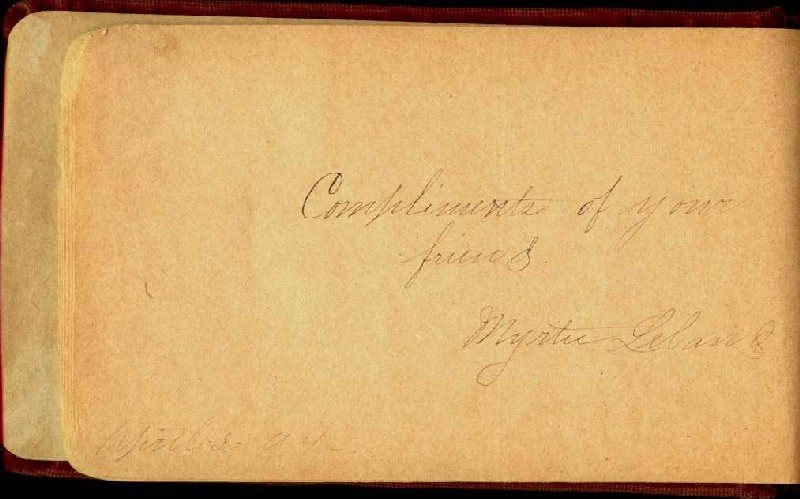 Compliments of your
friend
Myrtie Leland
April